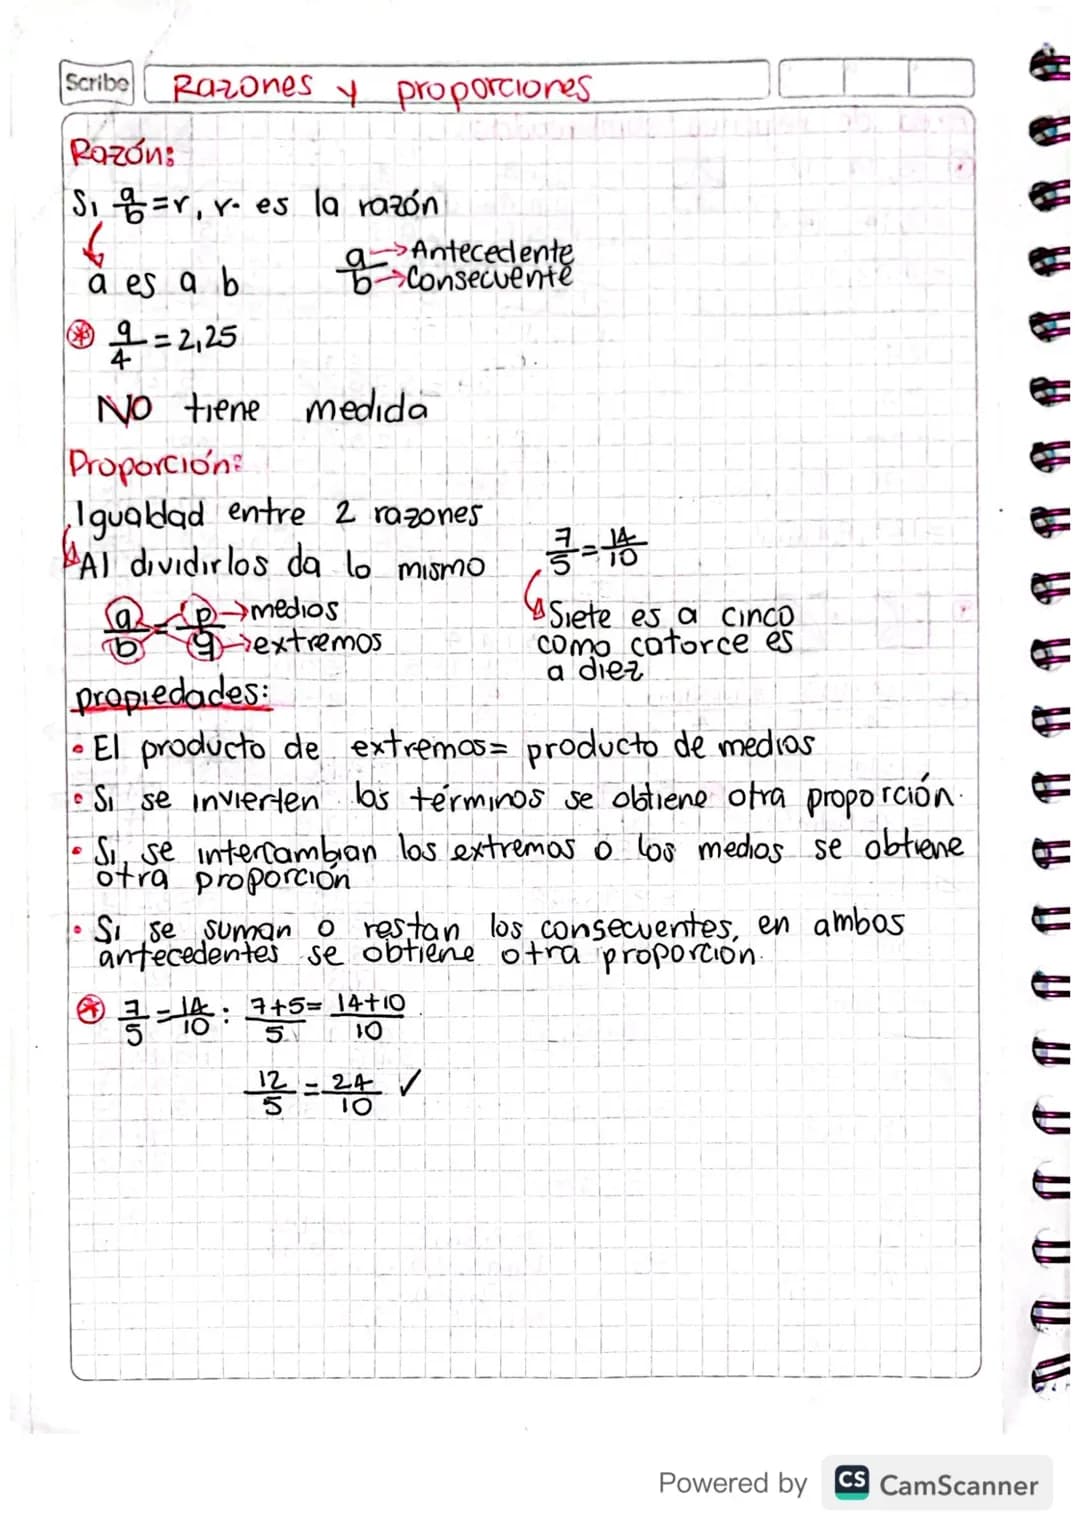 Scribe Razones y proporciones
Razón:
Si a/b = r, r. es la razón
a es a b
a/b → Antecedente
→ Consecuente
9/4 = 2,25
NO tiene medida
Proporción:
Igualdad entre 2 razones
Al dividirlos da lo mismo
7/5 = 14/10
a/b = p/q → medios
→ extremos
Siete es a cinco
como catorce es
a diez
propiedades:
• El producto de extremos = producto de medios
• Si se invierten los términos se obtiene otra proporción.
• Si, se intercambian los extremos o los medios se obtiene
otra proporción
• Si se suman o restan los consecuentes, en ambos
antecedentes se obtiene otra proporción.
7/5 = 14/10 : 7+5/5 = 14+10/10
12/5 = 24/10 ✓
Powered by CS CamScanner